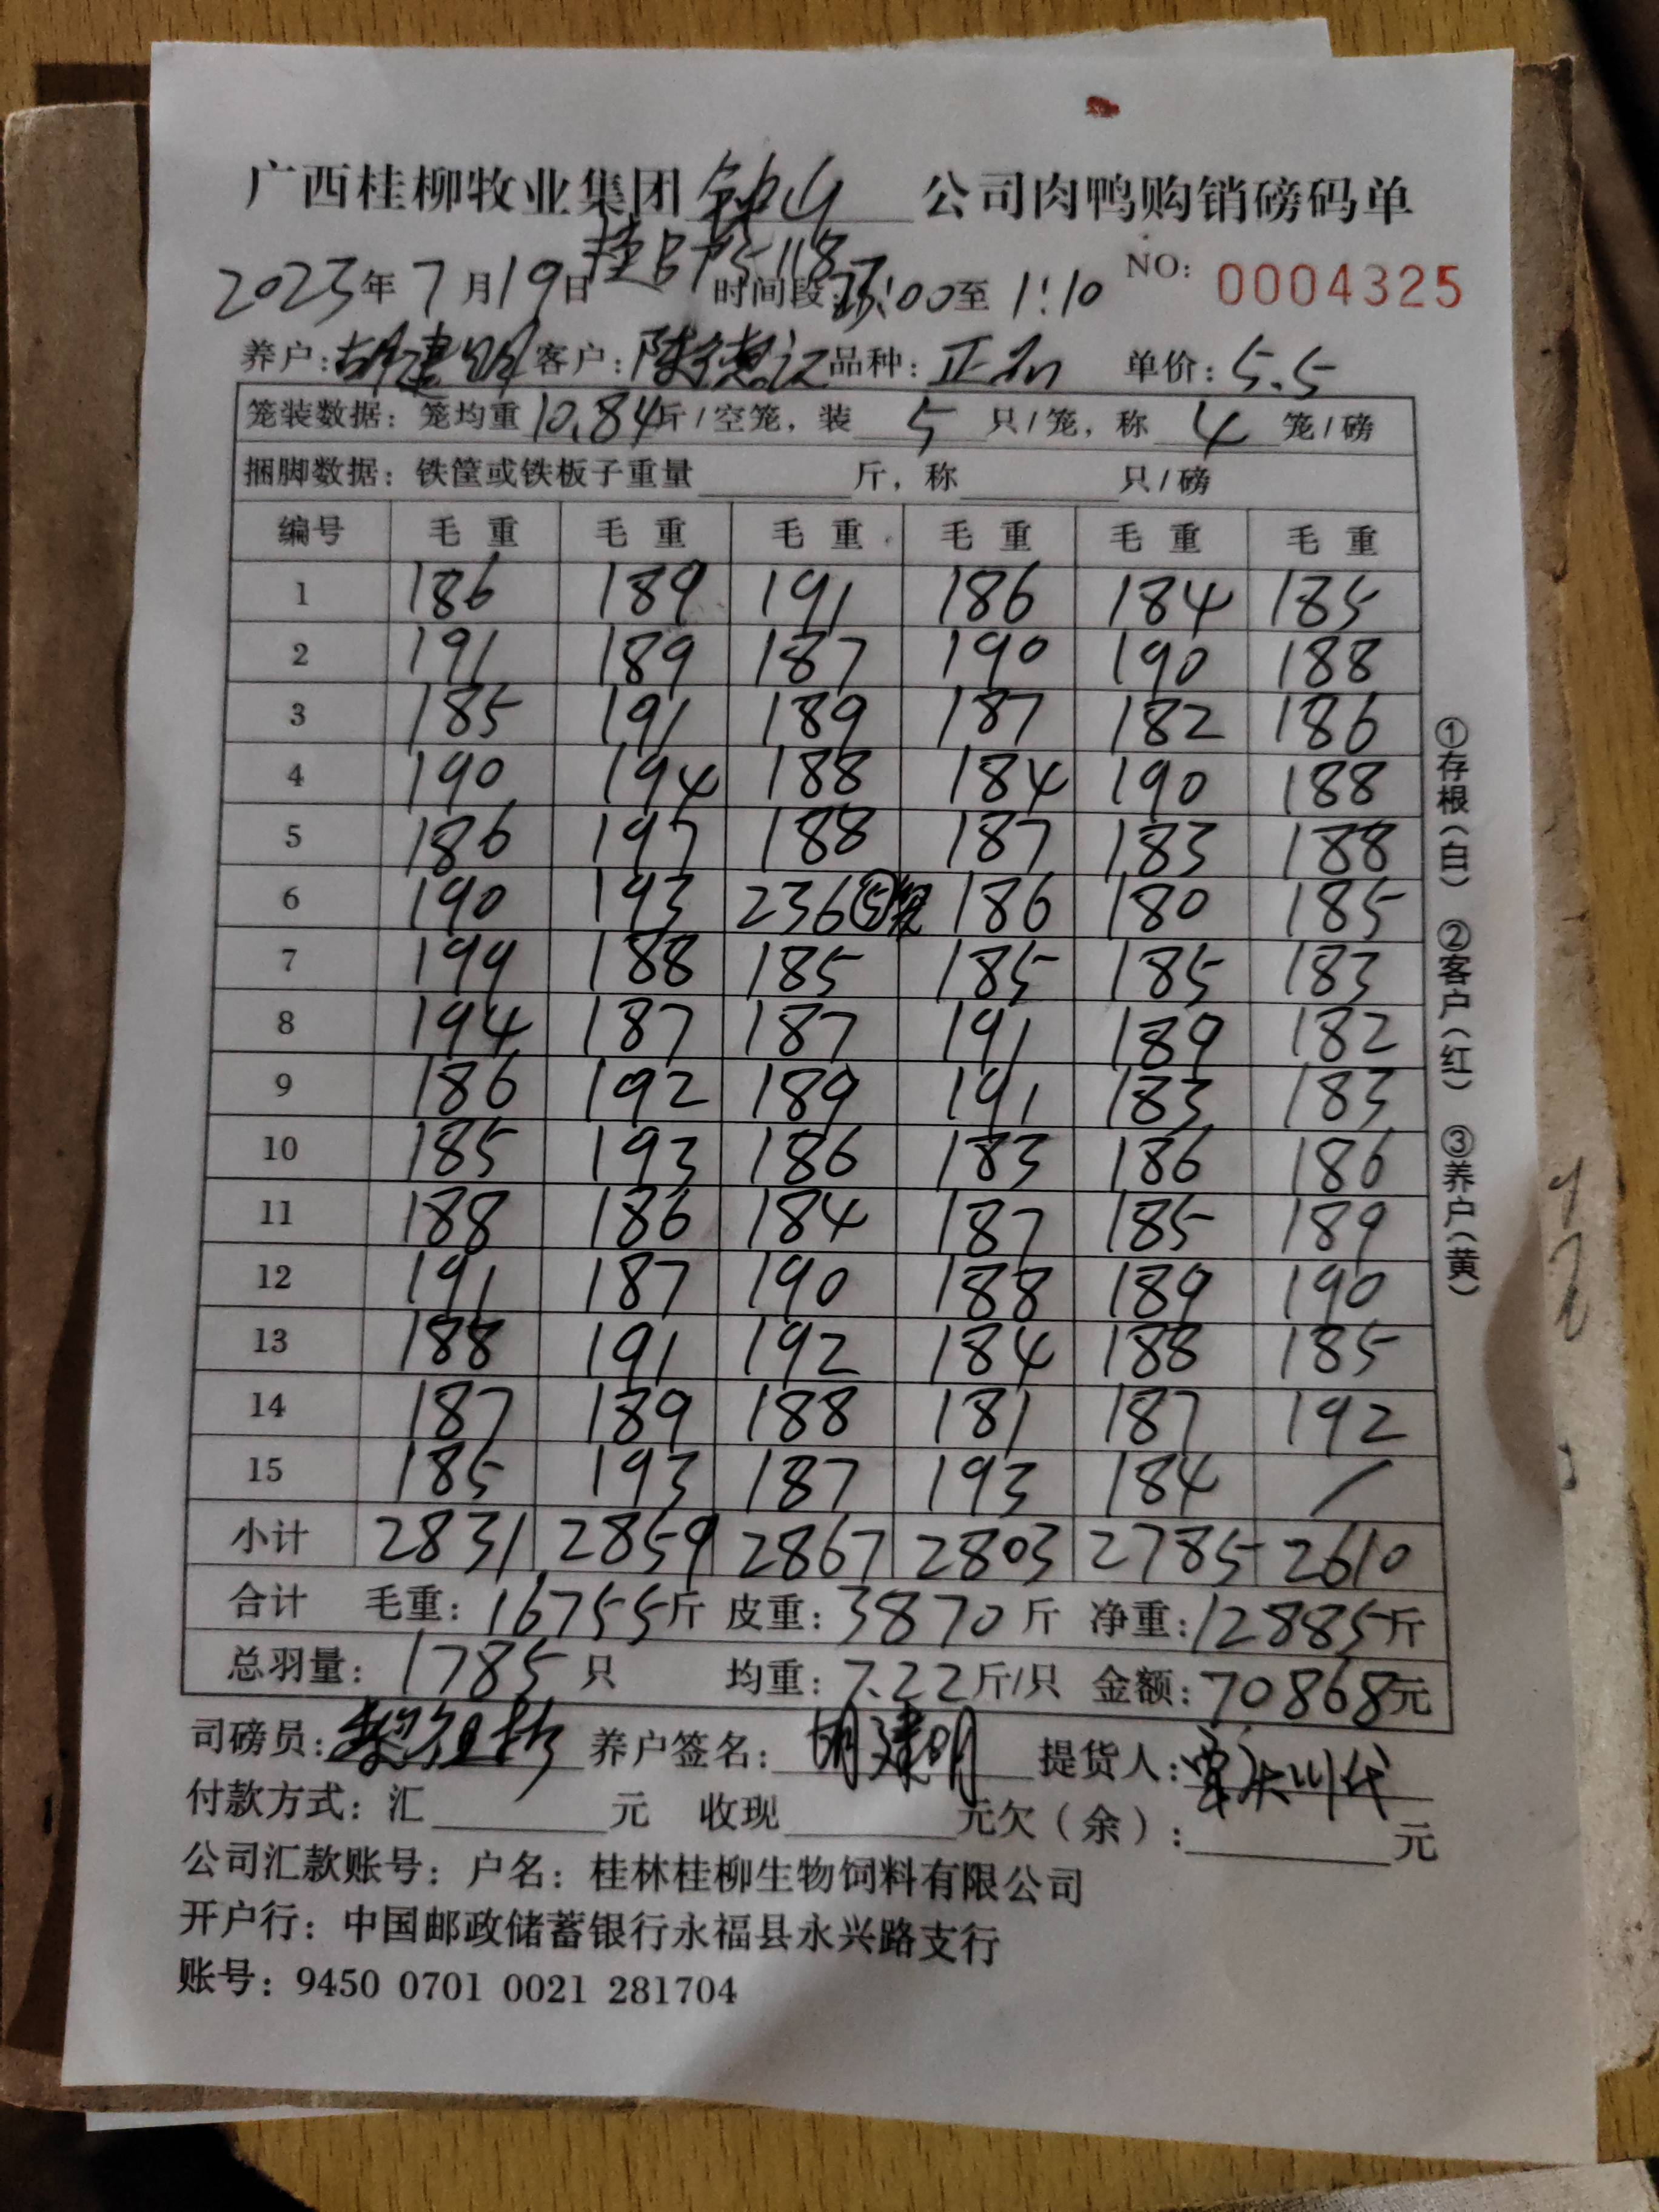 广西桂柳牧业集团 钟山 公司肉鸭购销磅码单
2023年 7月19日 时间段: :00至 1:10 NO: 0004325
养户: 胡建明 客户: 陈德江 品种: 正 单价: 5.5
笼装数据: 笼均重 10.84 斤/空笼, 装 5 只/笼, 称 4 笼/磅
捆脚数据: 铁筐或铁板子重量 斤, 称 只/磅
编号 毛重 毛重 毛重 毛重 毛重 毛重
1 186 189 191 186 184 185
2 191 189 187 190 190 188
3 185 191 189 187 182 186
4 190 194 188 184 190 188
5 186 197 188 187 183 188
6 190 193 236⑤笼 186 180 185
7 199 188 185 185 185 183
8 194 187 187 191 189 182
9 186 192 189 191 183 183
10 185 193 186 183 186 186
11 188 186 184 187 185 189
12 191 187 190 188 189 190
13 188 191 192 184 188 185
14 187 189 188 181 187 192
15 185 193 187 193 184 /
小计 2831 2859 2867 2803 2785 2610
合计 毛重: 16755斤 皮重: 3870斤 净重: 12885斤
总羽量: 1785只 均重: 7.22斤/只 金额: 70868元
司磅员: 养户签名: 胡建明 提货人:
付款方式: 汇 元 收现 元欠(余): 元
公司汇款账号: 户名: 桂林桂柳生物饲料有限公司
开户行: 中国邮政储蓄银行永福县永兴路支行
账号: 9450 0701 0021 281704
①存根(白) ②客户(红) ③养户(黄)